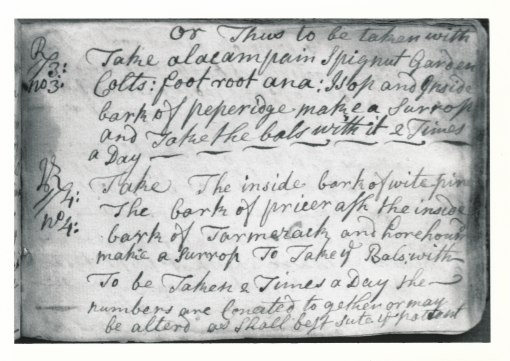 or Thus to be taken with
R/3: Take alacampain Spignut Garden
no3: Colts: foot root ana: Isop and Inside
bark of peperidge make a Surrop
and Take the bals with it 2 Times
a Day
R/4: Take The inside bark of wite pine
no4: The bark of pricer ash the inside
bark of Tarmerack and horehound
make a Surrop To Take ye Bals with
To be Taken 2 Times a Day the
numbers are to gether or may
be alterd as Shall best sute ye patient